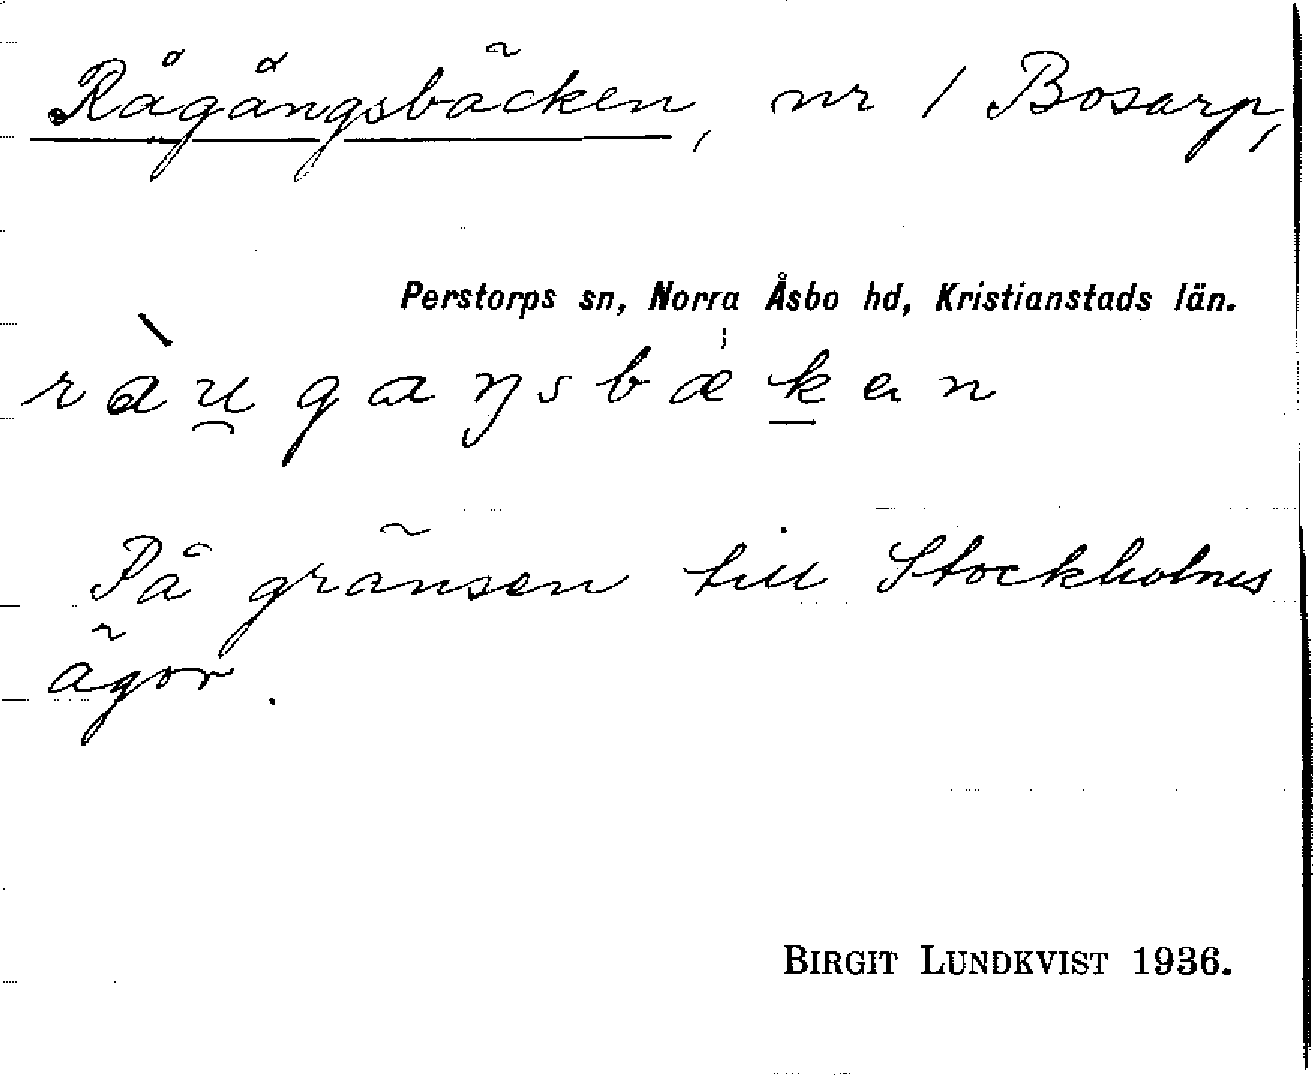 Rågångsbäcken, nr 1 Bosarp,
Perstorps sn, Norra Åsbo hd, Kristianstads län.
ràu̯gaŋsbækan
På gränsen till Stockholms
ägor.
BIRGIT LUNDKVIST 1936.